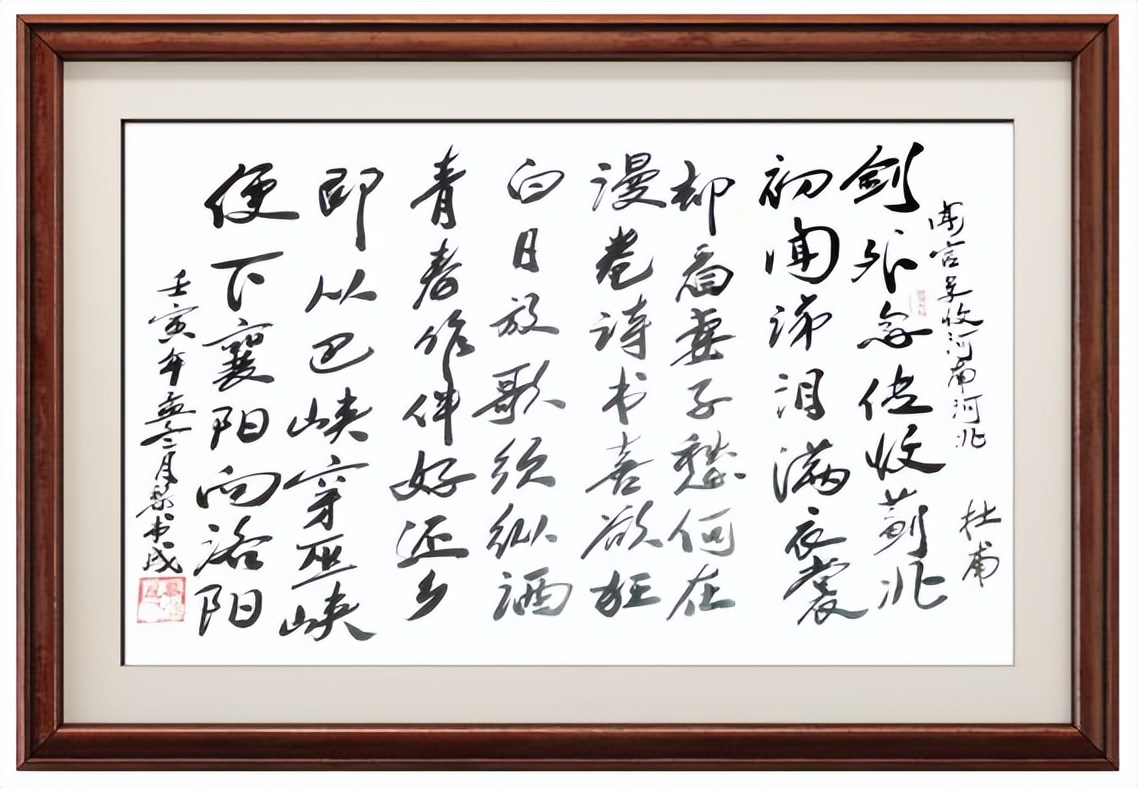 闻官军收河南河北
杜甫
剑外忽传收蓟北
初闻涕泪满衣裳
却看妻子愁何在
漫卷诗书喜欲狂
白日放歌须纵酒
青春作伴好还乡
即从巴峡穿巫峡
便下襄阳向洛阳
壬寅年二月书成